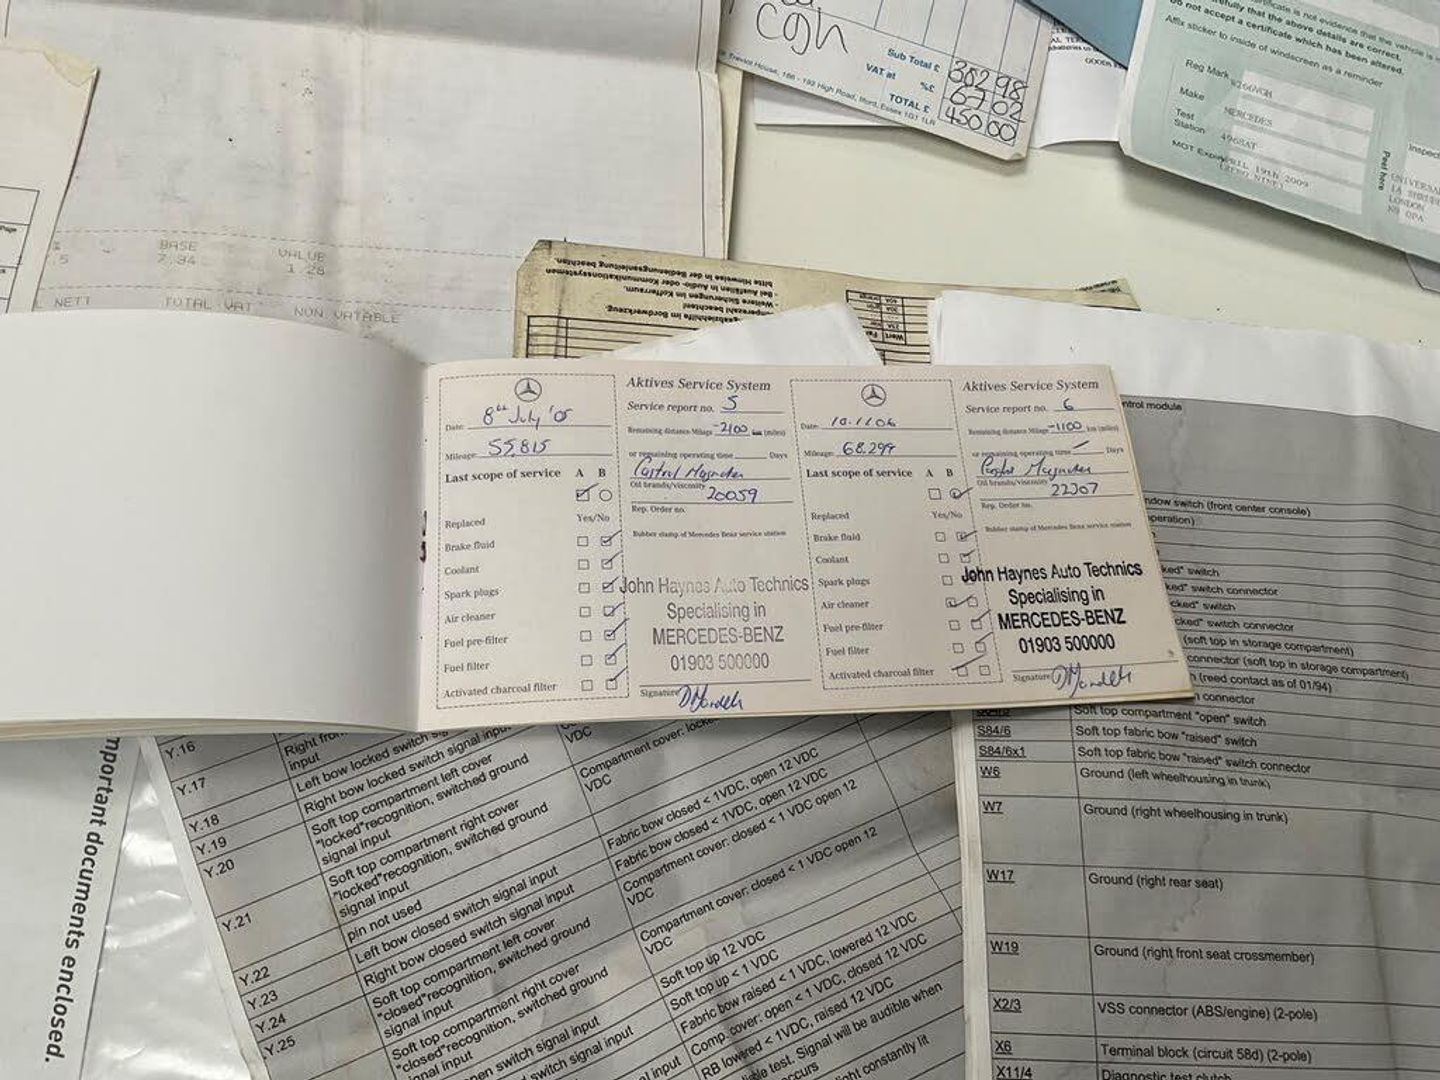 cash
Sub Total £ 382 98
VAT at %£ 67 02
TOTAL £ 450 00
Treviot House, 186 - 192 High Road, Ilford, Essex IG1 1LR
GOODS
do not accept a certificate which has been altered.
Affix sticker to inside of windscreen as a reminder
Reg Mark
Make MERCEDES
Test
Station 4968AT
MOT Expiry
APRIL 19th 2009
Peel here
UNIVERSA
LONDON
BASE VALUE
.5 7.34 1.28
NETT TOTAL VAT NON VATABLE
bitte Hinweise in der Bedienungsanleitung beachten.
- Bei Ausfällen in Audio- oder Kommunikationssystemen
Weitere Sicherungen im Kofferraum.
Aktives Service System
8th July '05
Date:
Service report no. 5
55,815
Mileage:
Remaining distance-Milage -2100 km (miles)
or remaining operating time Days
Last scope of service A B
Oil brands/viscosity
20059
Rep. Order no.
Replaced Yes/No
Rubber stamp of Mercedes Benz service station
Brake fluid
Coolant
Spark plugs
Air cleaner
Fuel pre-filter
Fuel filter
Activated charcoal filter
John Haynes Auto Technics
Specialising in
MERCEDES-BENZ
01903 500000
Signature
Aktives Service System
Date: 10.1.06
Service report no. 6
Mileage: 68,299
Remaining distance-Milage -1100 km (miles)
or remaining operating time Days
Last scope of service A B
Oil brands/viscosity
22207
Rep. Order no.
Replaced Yes/No
Rubber stamp of Mercedes Benz service station
Brake fluid
Coolant
Spark plugs
Air cleaner
Fuel pre-filter
Fuel filter
Activated charcoal filter
John Haynes Auto Technics
Specialising in
MERCEDES-BENZ
01903 500000
Signature
ntrol module
ndow switch (front center console)
peration)
ked" switch
ked" switch connector
cked" switch
cked" switch connector
(soft top in storage compartment)
connector (soft top in storage compartment)
(reed contact as of 01/94)
connector
Soft top compartment "open" switch
S84/6 Soft top fabric bow "raised" switch
S84/6x1 Soft top fabric bow "raised" switch connector
W6 Ground (left wheelhousing in trunk)
W7 Ground (right wheelhousing in trunk)
W17 Ground (right rear seat)
W19 Ground (right front seat crossmember)
X2/3 VSS connector (ABS/engine) (2-pole)
X6 Terminal block (circuit 58d) (2-pole)
X11/4 Diagnostic test clutch
mportant documents enclosed.
Y.16
Y.17
Y.18
Y.19
Y.20
Y.21
Y.22
Y.23
Y.24
Y.25
input
Left bow locked switch
Right bow locked switch signal input
Soft top compartment left cover
"locked"recognition, switched ground
signal input
Soft top compartment right cover
"locked"recognition, switched ground
signal input
pin not used
Left bow closed switch signal input
Right bow closed switch signal input
Soft top compartment left cover
"closed"recognition, switched ground
signal input
Soft top compartment right cover
"closed"recognition, switched ground
signal input
VDC
Compartment cover:
VDC
Fabric bow closed < 1VDC, open 12 VDC
Fabric bow closed < 1VDC, open 12 VDC
Compartment cover: closed < 1 VDC open 12
VDC
Compartment cover: closed < 1 VDC open 12
VDC
Soft top up 12 VDC
Soft top up < 1 VDC
Fabric bow raised < 1 VDC, lowered 12 VDC
Comp. cover: open < 1 VDC, closed 12 VDC
RB lowered < 1VDC, raised 12 VDC
test. Signal will be audible when
occurs
constantly lit